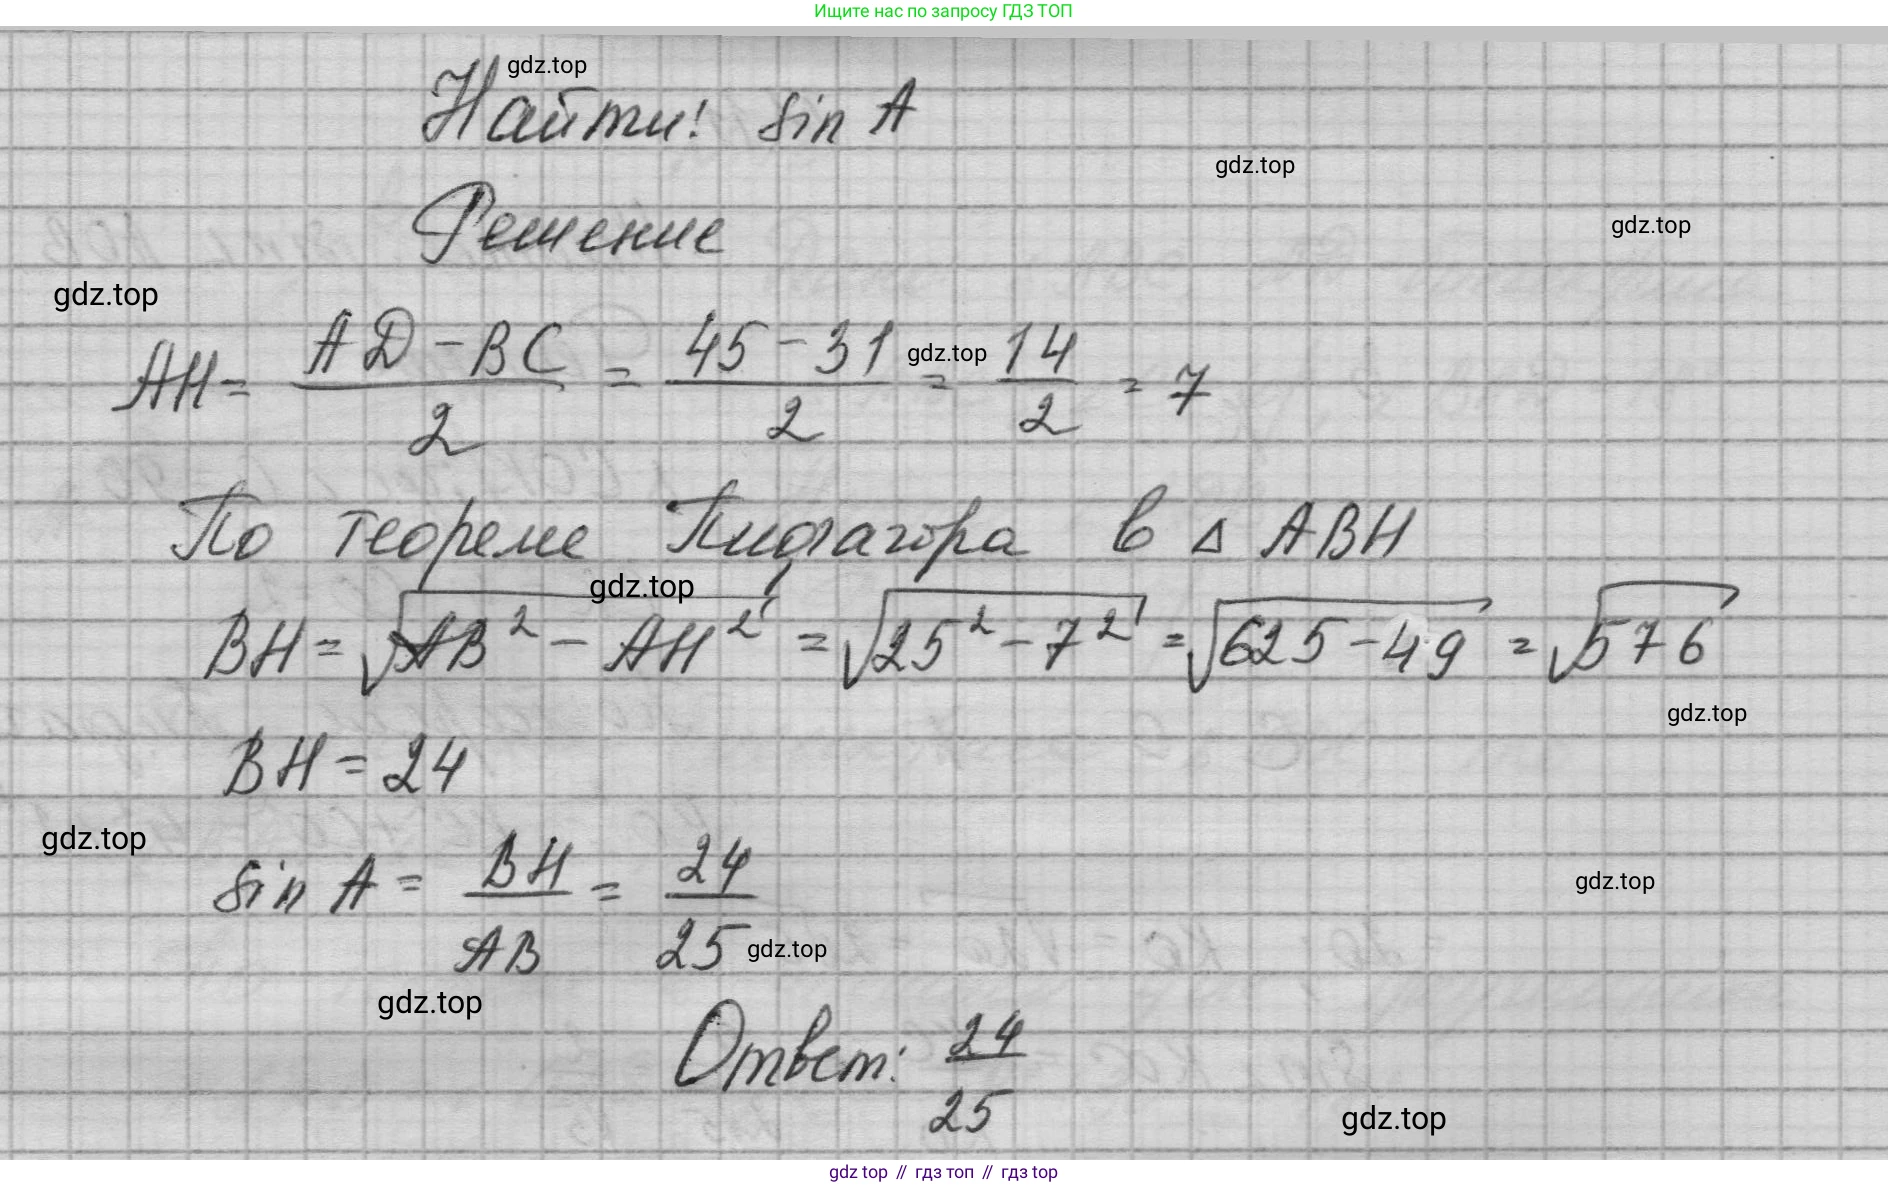 Ищите нас по запросу ГДЗ ТОП
gdz.top
Найти: sin A
gdz.top
Решение
gdz.top
gdz.top
AH = \frac{AD - BC}{2} = \frac{45 - 31}{2} = \frac{14}{2} = 7
gdz.top
По теореме Пифагора в △ ABH
gdz.top
BH = √(AB² - AH²) = √(25² - 7²) = √(625 - 49) = √576
gdz.top
BH = 24
gdz.top
sin A = \frac{BH}{AB} = \frac{24}{25}
gdz.top
gdz.top
gdz.top
Ответ: \frac{24}{25}
gdz.top
gdz top // гдз топ // гдз top